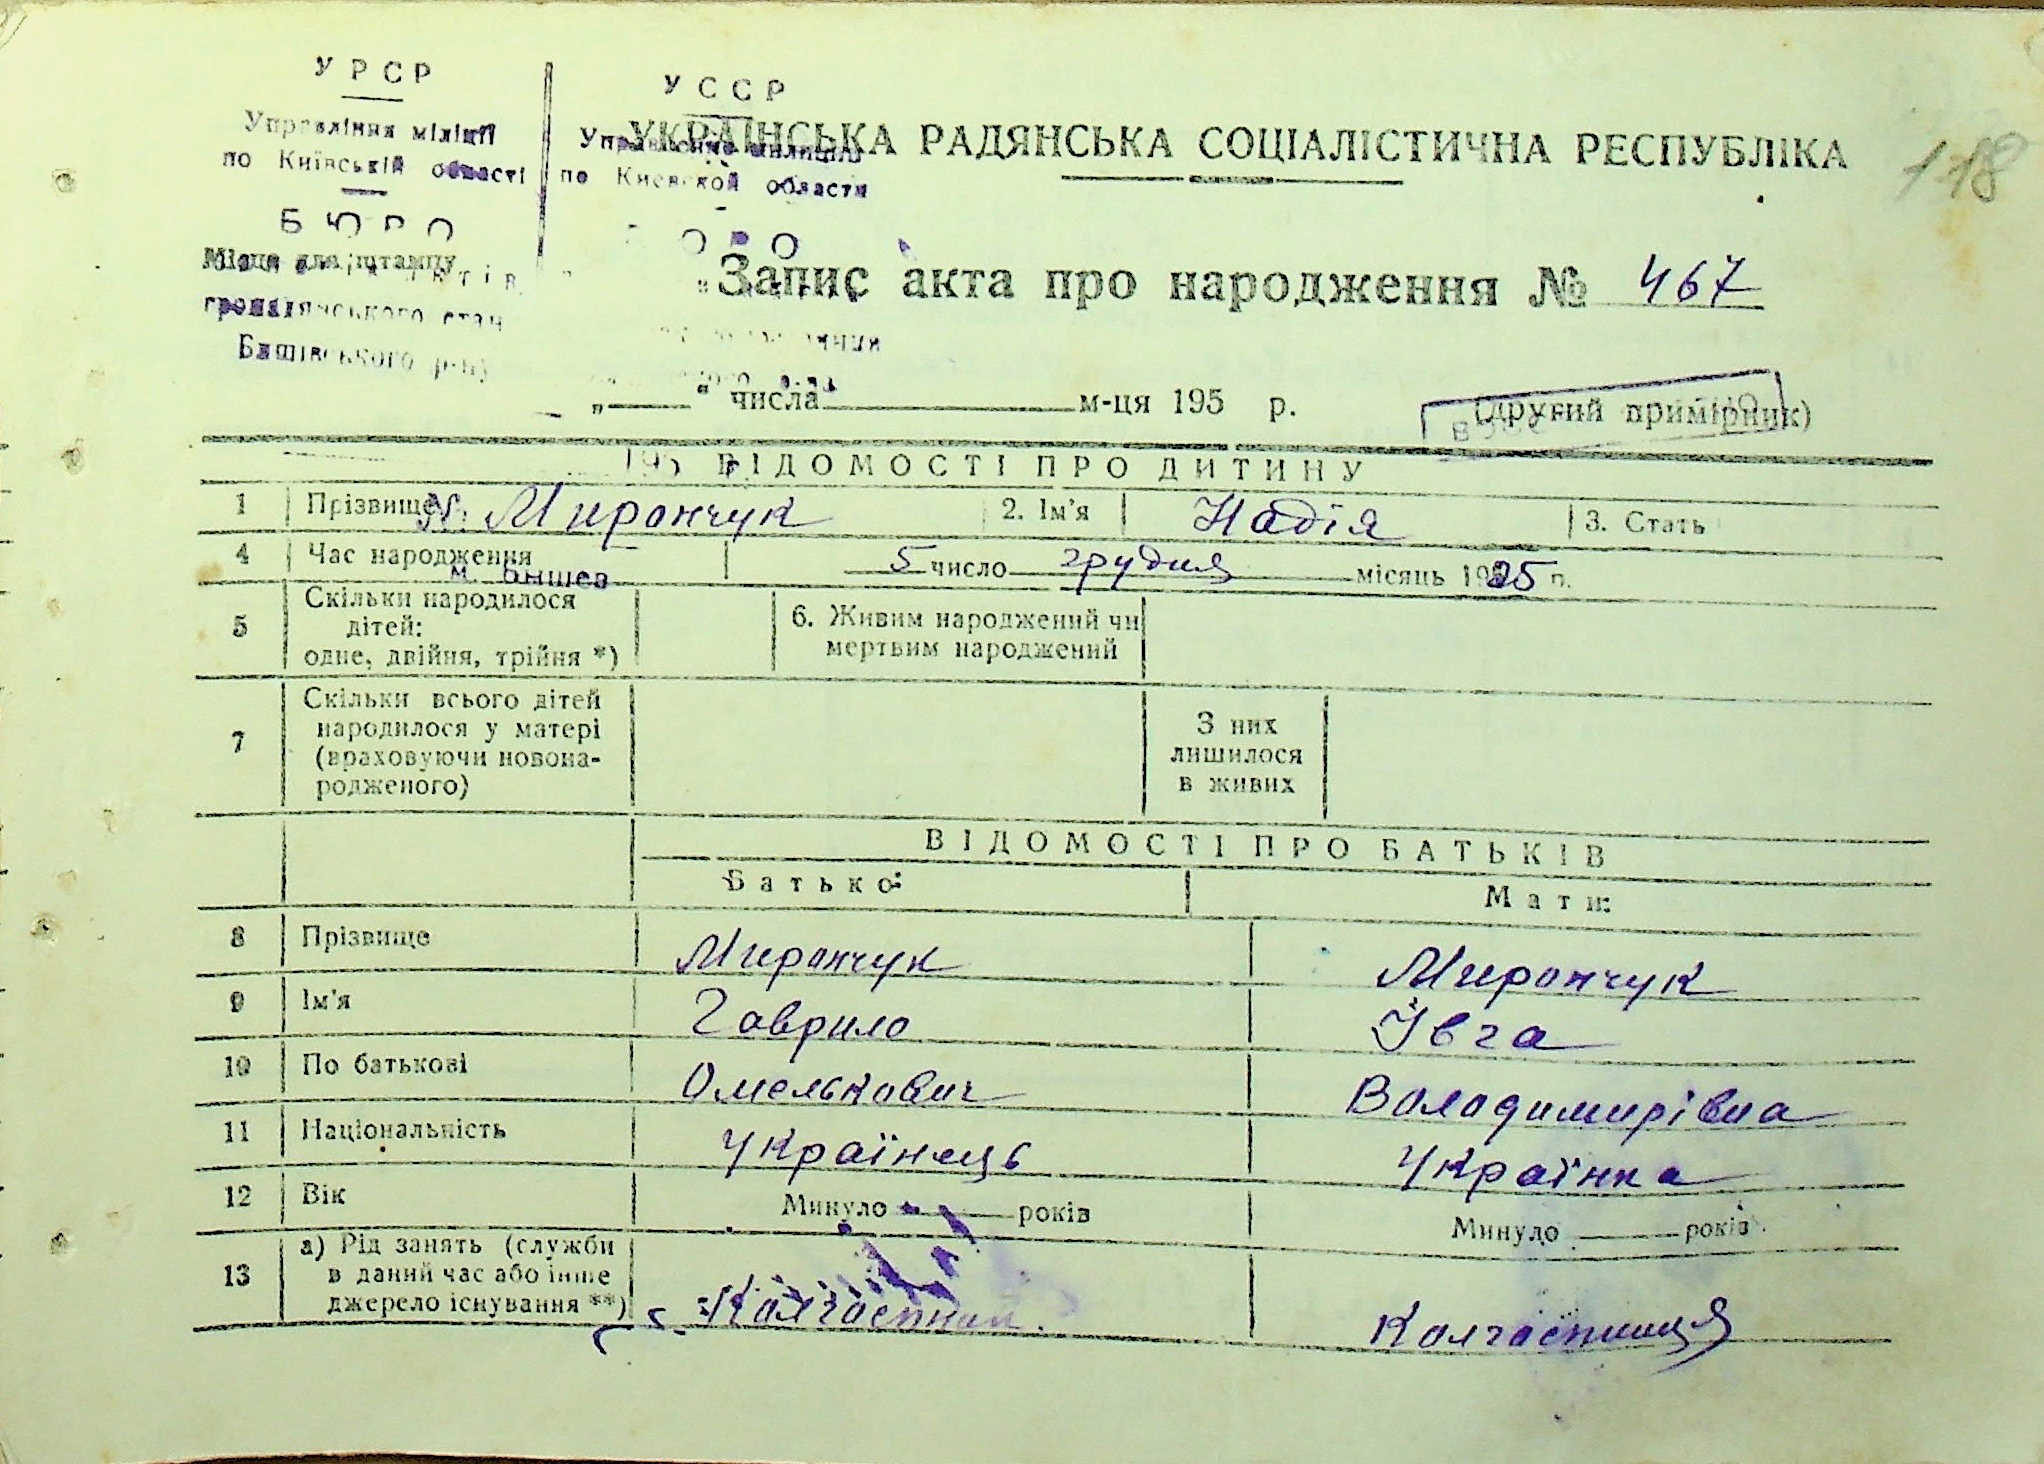 УРСР
Управління міліції
по Київській області
БЮРО
УССР
Управление милиции
по Киевской области
УКРАЇНСЬКА РАДЯНСЬКА СОЦІАЛІСТИЧНА РЕСПУБЛІКА
118
Місце для штампу
громадянського стан
Запис акта про народження № 467
„ “ числа м-ця 195 р.
(другий примірник)
ВІДОМОСТІ ПРО ДИТИНУ
1 Прізвище Мирончук 2. Ім'я Надія 3. Стать
4 Час народження 5 число грудня місяць 1925 р.
м. Бышев
5 Скільки народилося
дітей:
одне, двійня, трійня *)
6. Живим народжений чи
мертвим народжений
7 Скільки всього дітей
народилося у матері
(враховуючи новона-
родженого)
З них
лишилося
в живих
ВІДОМОСТІ ПРО БАТЬКІВ
Батько: Мати:
8 Прізвище Мирончук Мирончук
9 Ім'я Гаврило Ївга
10 По батькові Омелькович Володимирівна
11 Національність Українець Українка
12 Вік Минуло років Минуло років
13 а) Рід занять (служби
в даний час або інше
джерело існування **)
Колгоспник Колгоспниця